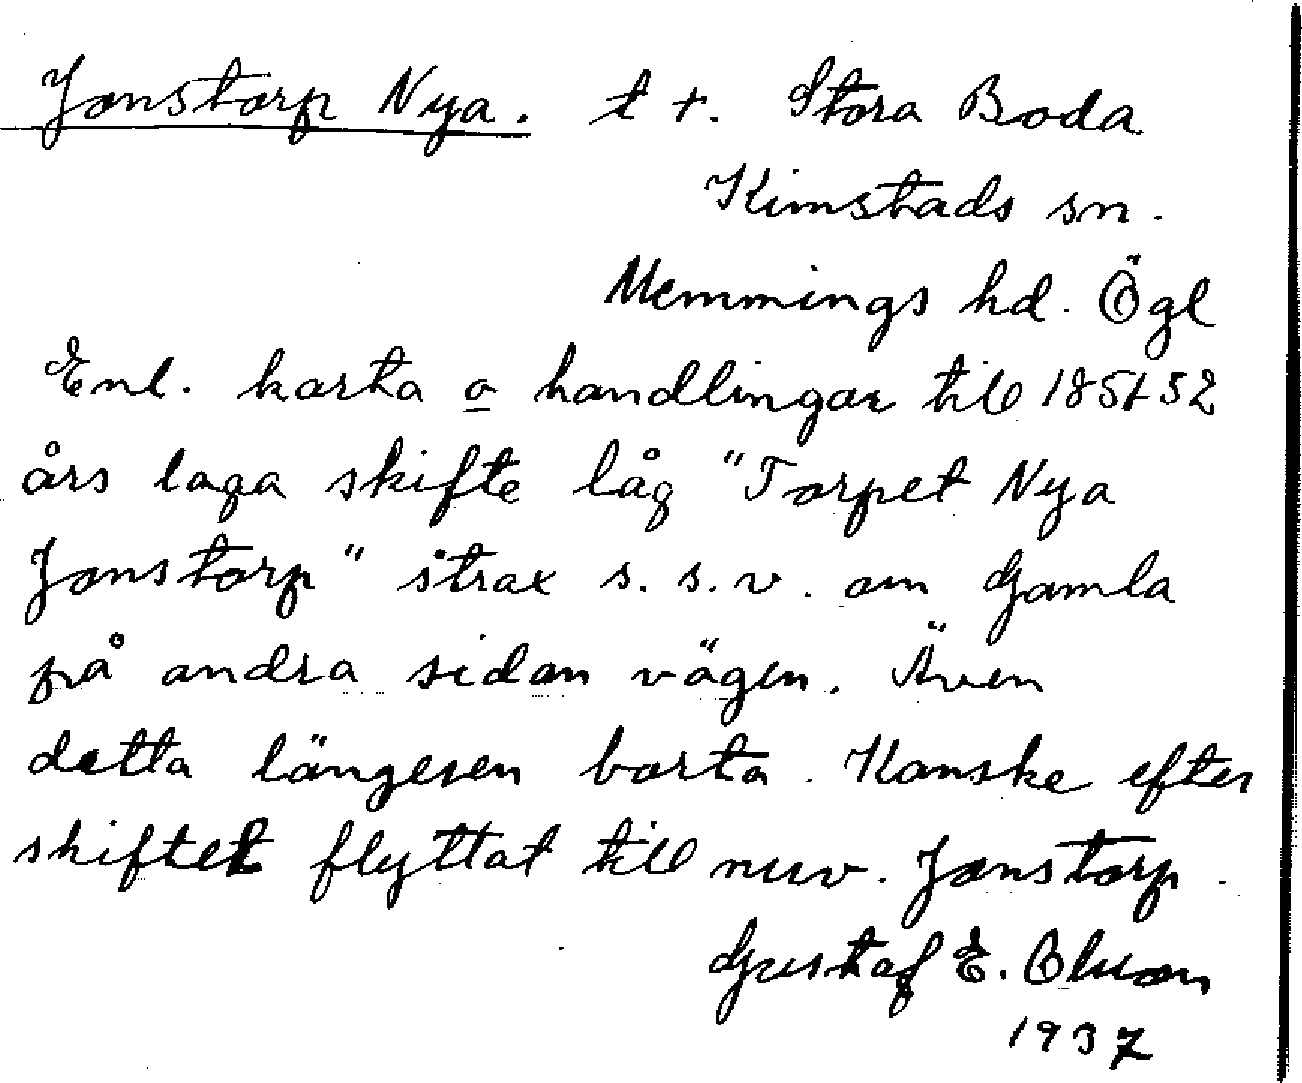 Jonstorp Nya. t t. Stora Boda
Kimstads sn.
Memmings hd. Ögl
Enl. karta o handlingar till 1851-52
års laga skifte låg "Torpet Nya
Jonstorp" strax s.s.v. om Gamla
på andra sidan vägen. Även
detta längesen borta. Kanske efter
skiftet flyttat till nuv. Jonstorp.
Gustaf E. Olsson
1937